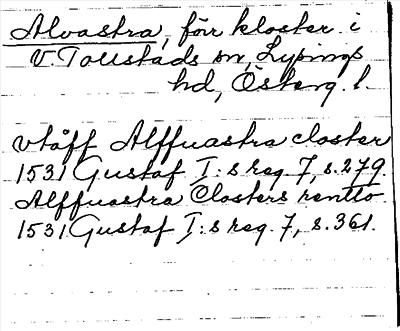 Alvastra, förr kloster i
V. Tollstads sn, Lysings
hd, Österg. l.
vtåff Alffuastra closter
1531 Gustaf I:s reg. 7, s. 279.
Alffuastra Closters rentto
1531 Gustaf I:s reg. 7, s. 361.